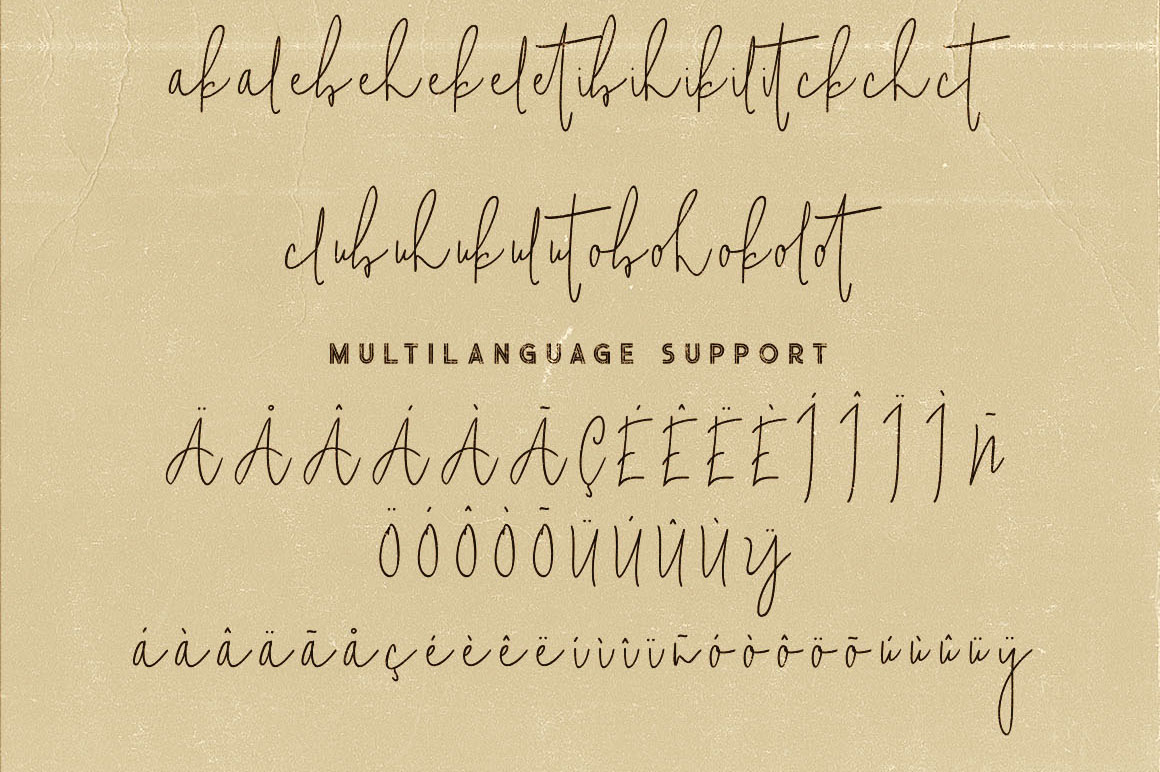 akalebehekeletibihikilitckchct
clubuhukulutobohokolot
MULTILANGUAGE SUPPORT
ÄÅÂÁÀÃÇÉÊËÈÍÎÏÌÑ
ÖÓÔÒÕÜÚÛÙŸ
áàâäãåçéèêëíìîïñóòôöõúùûüÿ